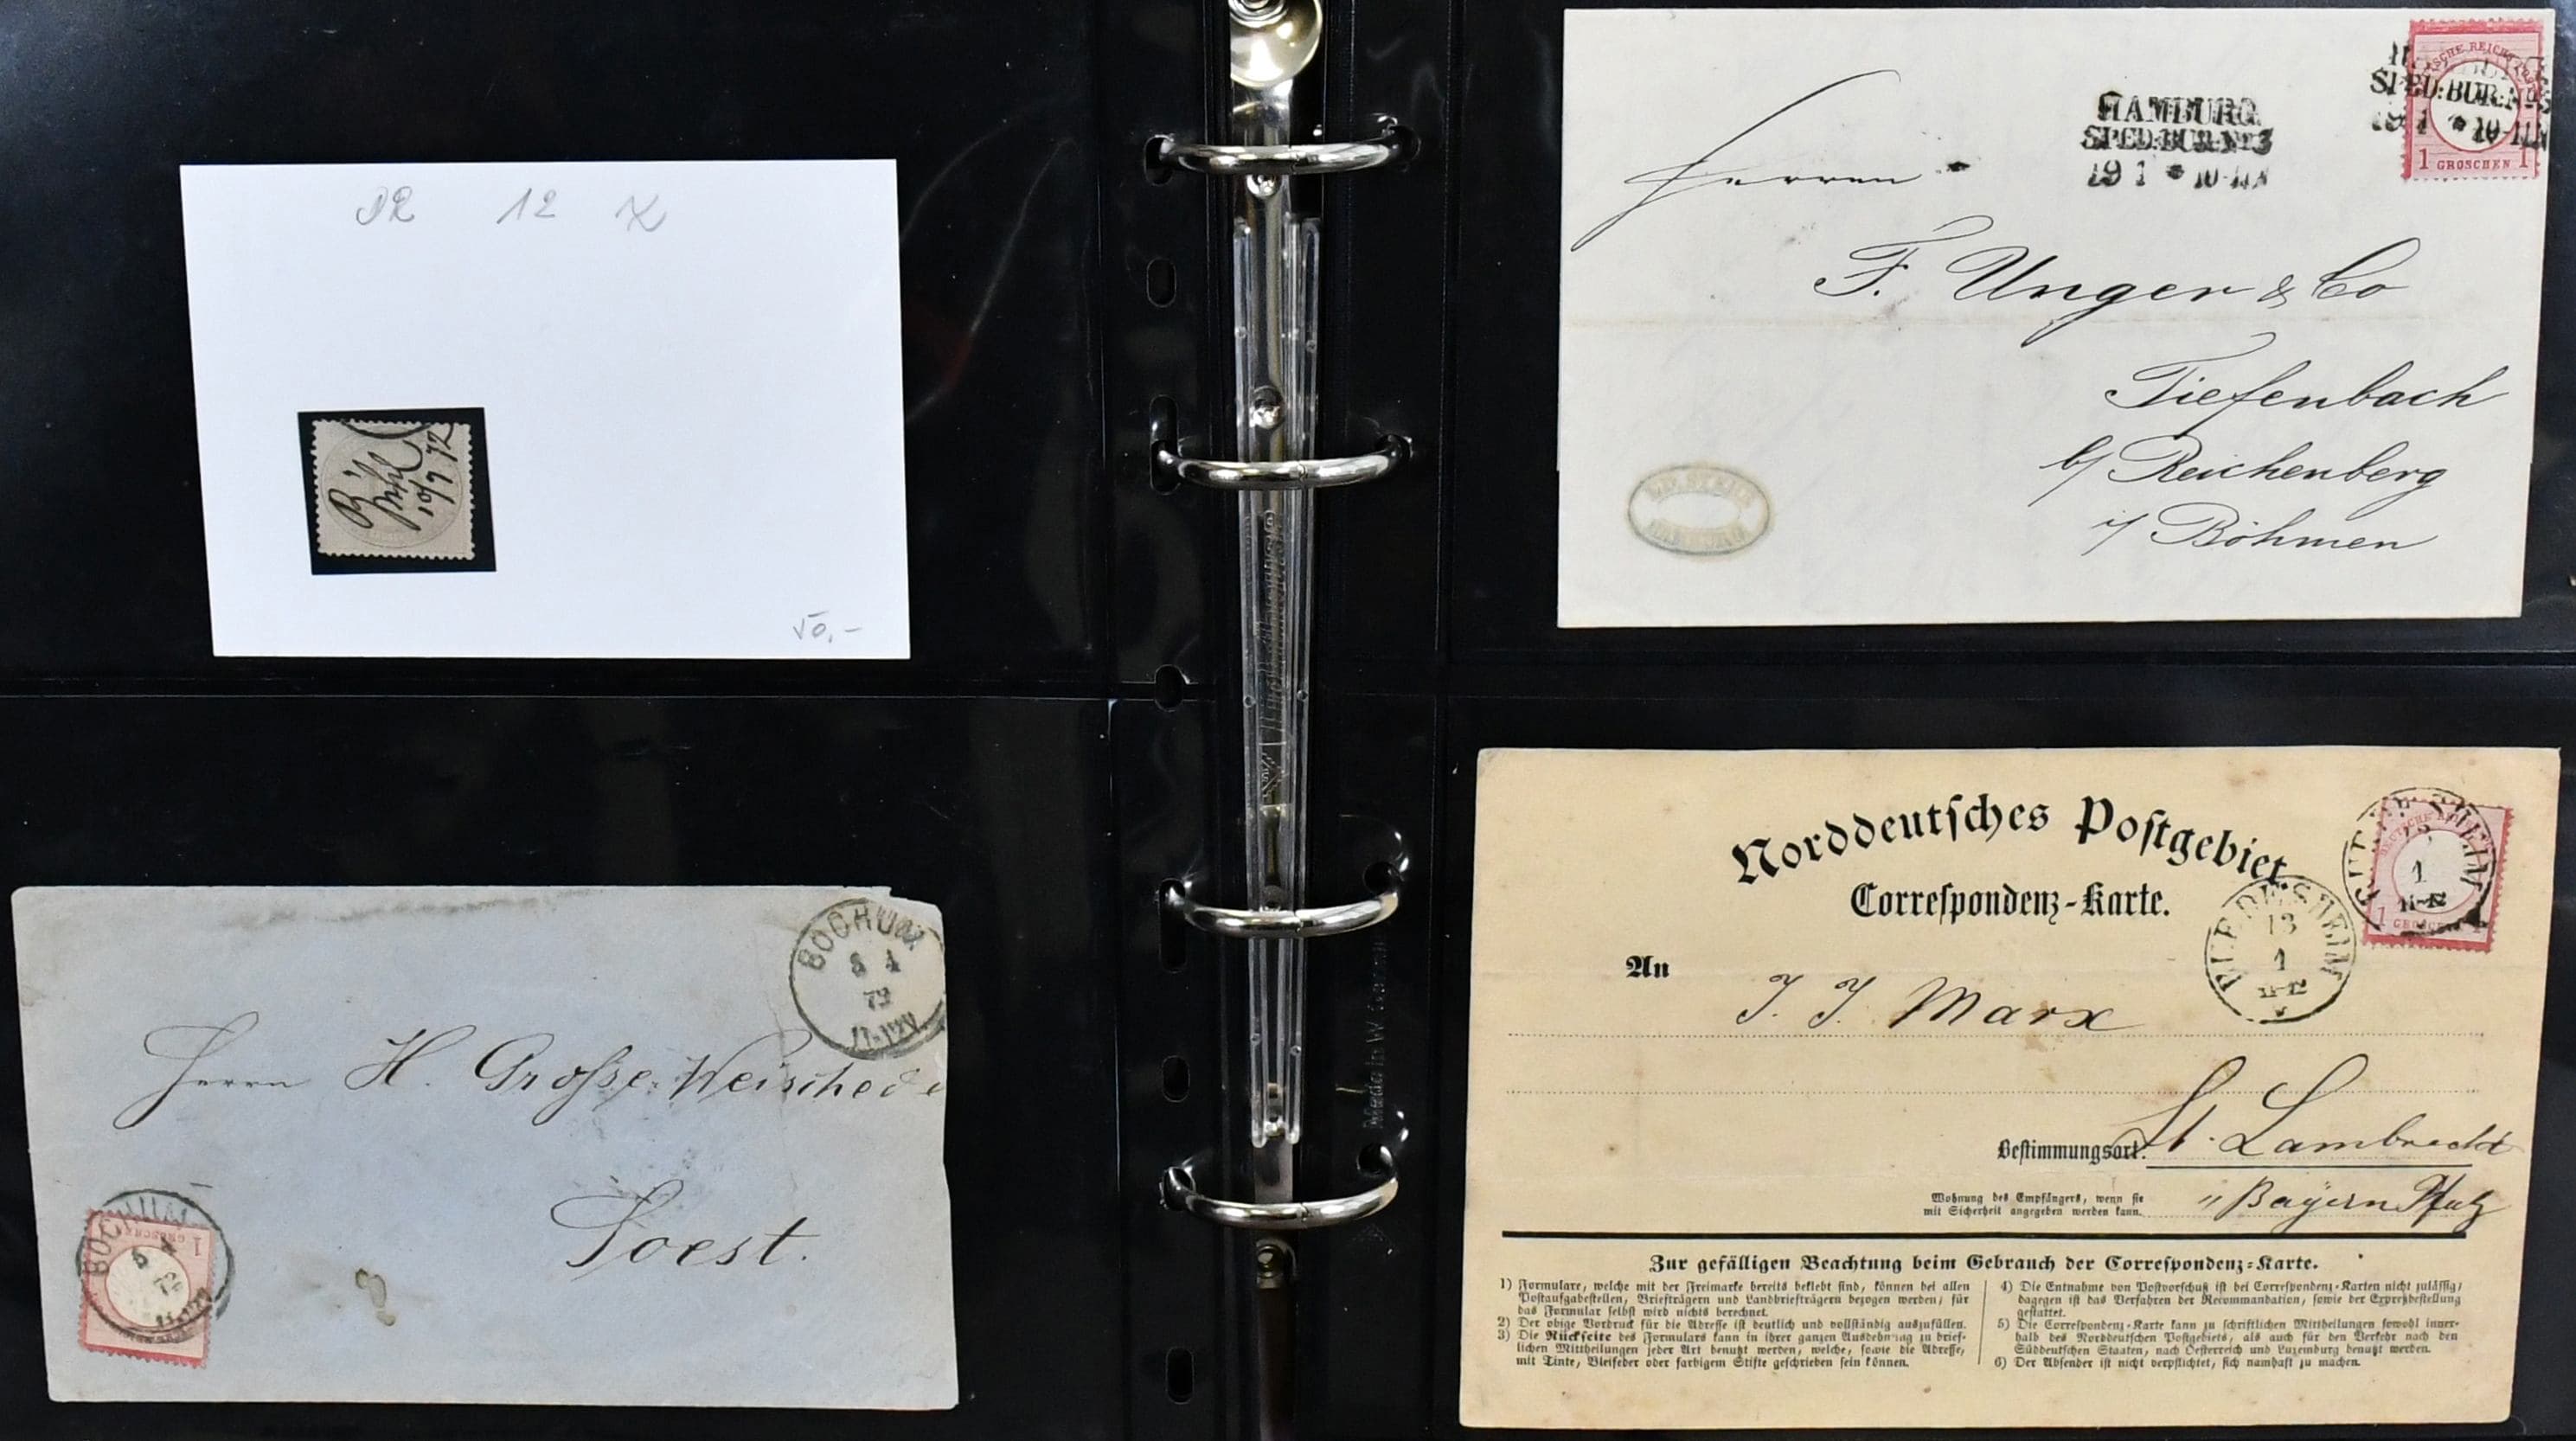 DR 12 X
10/9 72
50,-
HAMBURG
SPED:BUR:No 3
19 1 * 10-11N
SPED:BUR:No 3
19 1 * 10-11N
1 GROSCHEN 1
Herren
F. Unger & Co
Tiefenbach
b/ Reichenberg
i/ Böhmen
BOCHUM
5 4
72
Herrn H. Grosse-Weischede
Soest.
BOCHUM
5 4
72
1 GROSCHEN
Norddeutsches Postgebiet
Correspondenz-Karte.
13
1
11-12
1
11-12
1 GROSCHEN 1
An J. J. Marx
Bestimmungsort: St. Lambrecht
Wohnung des Empfängers, wenn sie
mit Sicherheit angegeben werden kann.
" Bayern Pfalz
Zur gefälligen Beachtung beim Gebrauch der Correspondenz-Karte.
1) Formulare, welche mit der Freimarke bereits beklebt sind, können bei allen
Postaufgabestellen, Briefträgern und Landbriefträgern bezogen werden; für
das Formular selbst wird nichts berechnet.
2) Der obige Vordruck für die Adresse ist deutlich und vollständig auszufüllen.
3) Die Rückseite des Formulars kann in ihrer ganzen Ausdehnung zu brief-
lichen Mittheilungen jeder Art benutzt werden, welche, sowie die Adresse,
mit Tinte, Bleifeder oder farbigem Stifte geschrieben sein können.
4) Die Entnahme von Postvorschuß ist bei Correspondenz-Karten nicht zulässig;
dagegen ist das Verfahren der Recommandation, sowie der Expreßbestellung
gestattet.
5) Die Correspondenz-Karte kann zu schriftlichen Mittheilungen sowohl inner-
halb des Norddeutschen Postgebiets, als auch für den Verkehr nach den
Süddeutschen Staaten, nach Oesterreich und Luxemburg benutzt werden.
6) Der Absender ist nicht verpflichtet, sich namhaft zu machen.